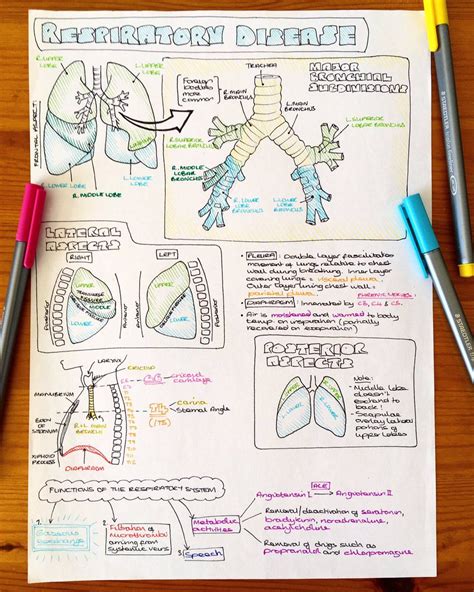 RESPIRATORY DISEASE
R.UPPER LOBE
L.UPPER LOBE
FRONTAL ASPECT:
LINGULA
R.LOWER LOBE
L.LOWER LOBE
R.MIDDLE LOBE
TRACHEA
MAJOR
BRONCHIAL
SUBDIVISIONS
Foreign
bodies
more
common
R.MAIN
BRONCHUS
L.MAIN
BRONCHUS
R.SUPERIOR
LOBAR BRONCHUS
L.SUPERIOR
LOBAR BRONCHUS
R.MIDDLE
LOBAR
BRONCHUS
R.LOWER
LOBAR
BRONCHUS
L.LOWER
LOBAR
BRONCHUS
LATERAL
ASPECTS
RIGHT
LEFT
UPPER
UPPER
MIDDLE
LOWER
LOWER
PLEURA: Double layer facilitates
movement of lungs relative to chest
wall during breathing. Inner layer
covering lungs = visceral pleura.
Outer layer lining chest wall =
parietal pleura.
PHRENIC NERVES
DIAPHRAGM: Innervated by C3, C4 & C5.
Air is moistened and warmed to body
temp on inspiration (partially
recovered on expiration)
POSTERIOR
ASPECTS
L.UPPER
R.UPPER
L.LOWER
R.LOWER
Note:
- Middle lobe
doesn't
extend to
back!
- Scapulae
overlay lateral
portions of
upper lobes
LARYNX
CRICOID
cricoid
cartilage
MANUBRIUM
carina
Sternal Angle
BODY OF
STERNUM
R+L MAIN
BRONCHI
XIPHOID
PROCESS
DIAPHRAGM
FUNCTIONS OF THE RESPIRATORY SYSTEM
1.
Gaseous
exchange
2.
Filtration of
Microthrombi
arising from
systemic veins
Metabolic
activities
3. Speech
ACE
Angiotensin I → Angiotensin II
Removal/deactivation of serotonin,
bradykinin, noradrenaline,
acetylcholine
Removal of drugs such as
propranolol and chlorpromazine
STAEDTLER